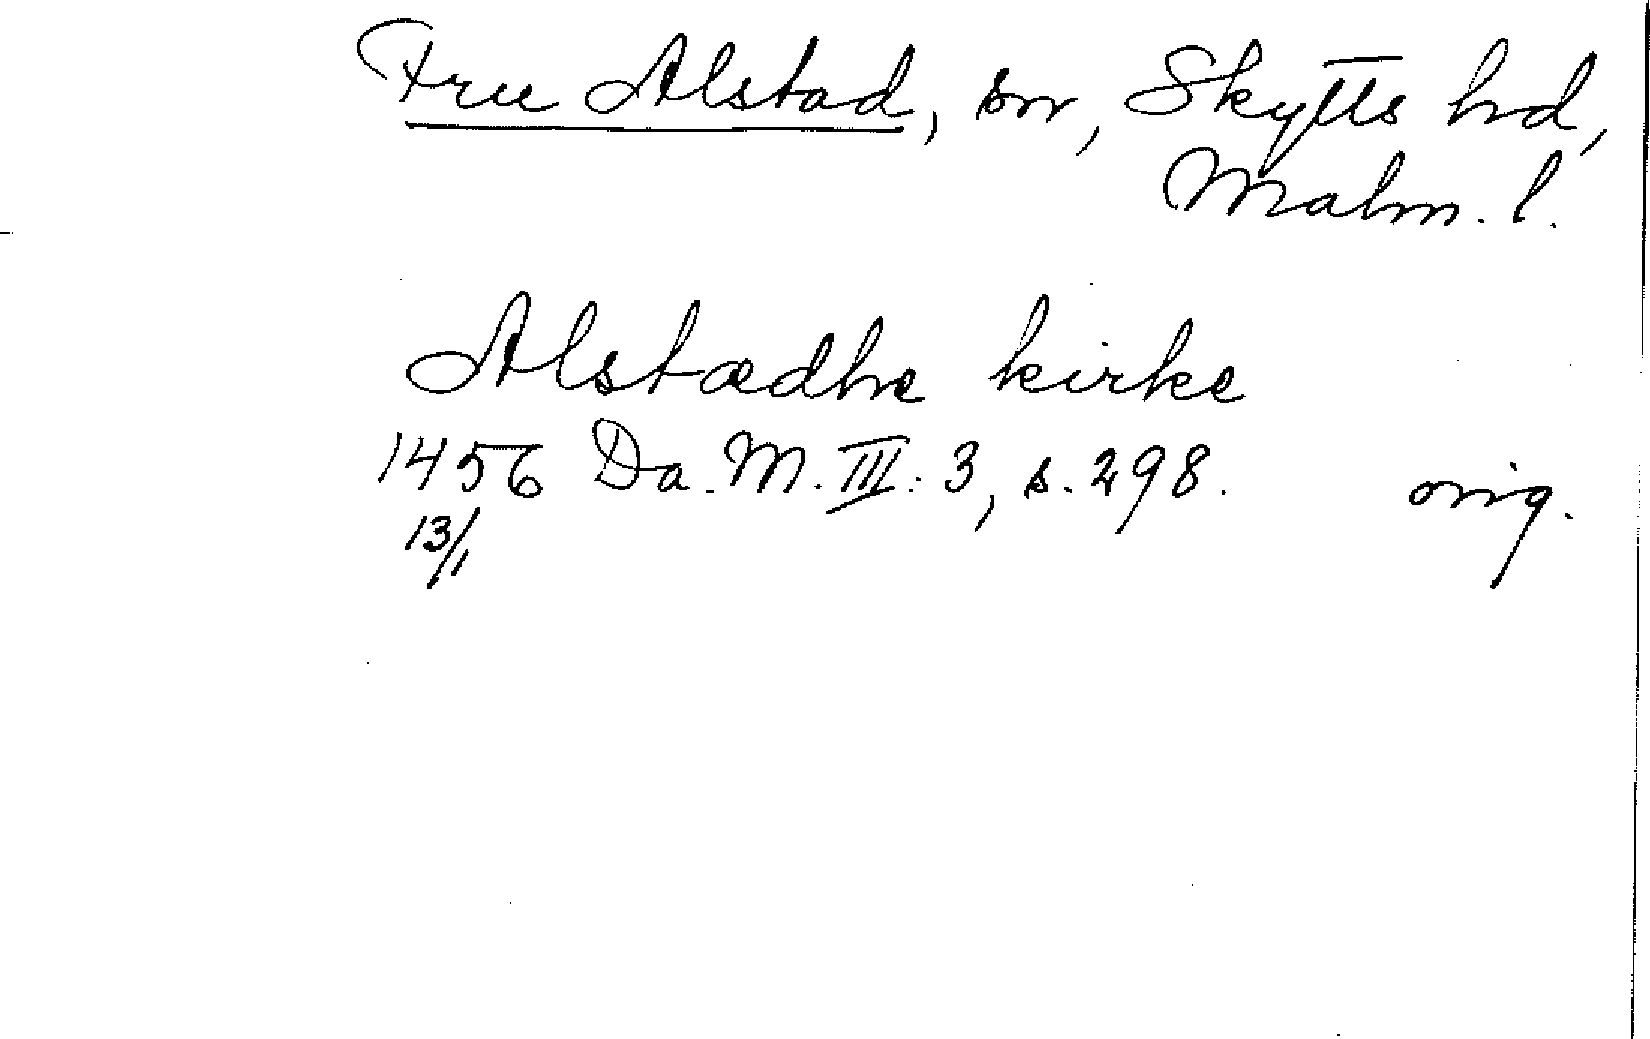 Fru Alstad, sn, Skytts hd,
Malm. l.
Alstædhe kirke
1456 Da. M. III: 3, s. 298. orig.
13/1